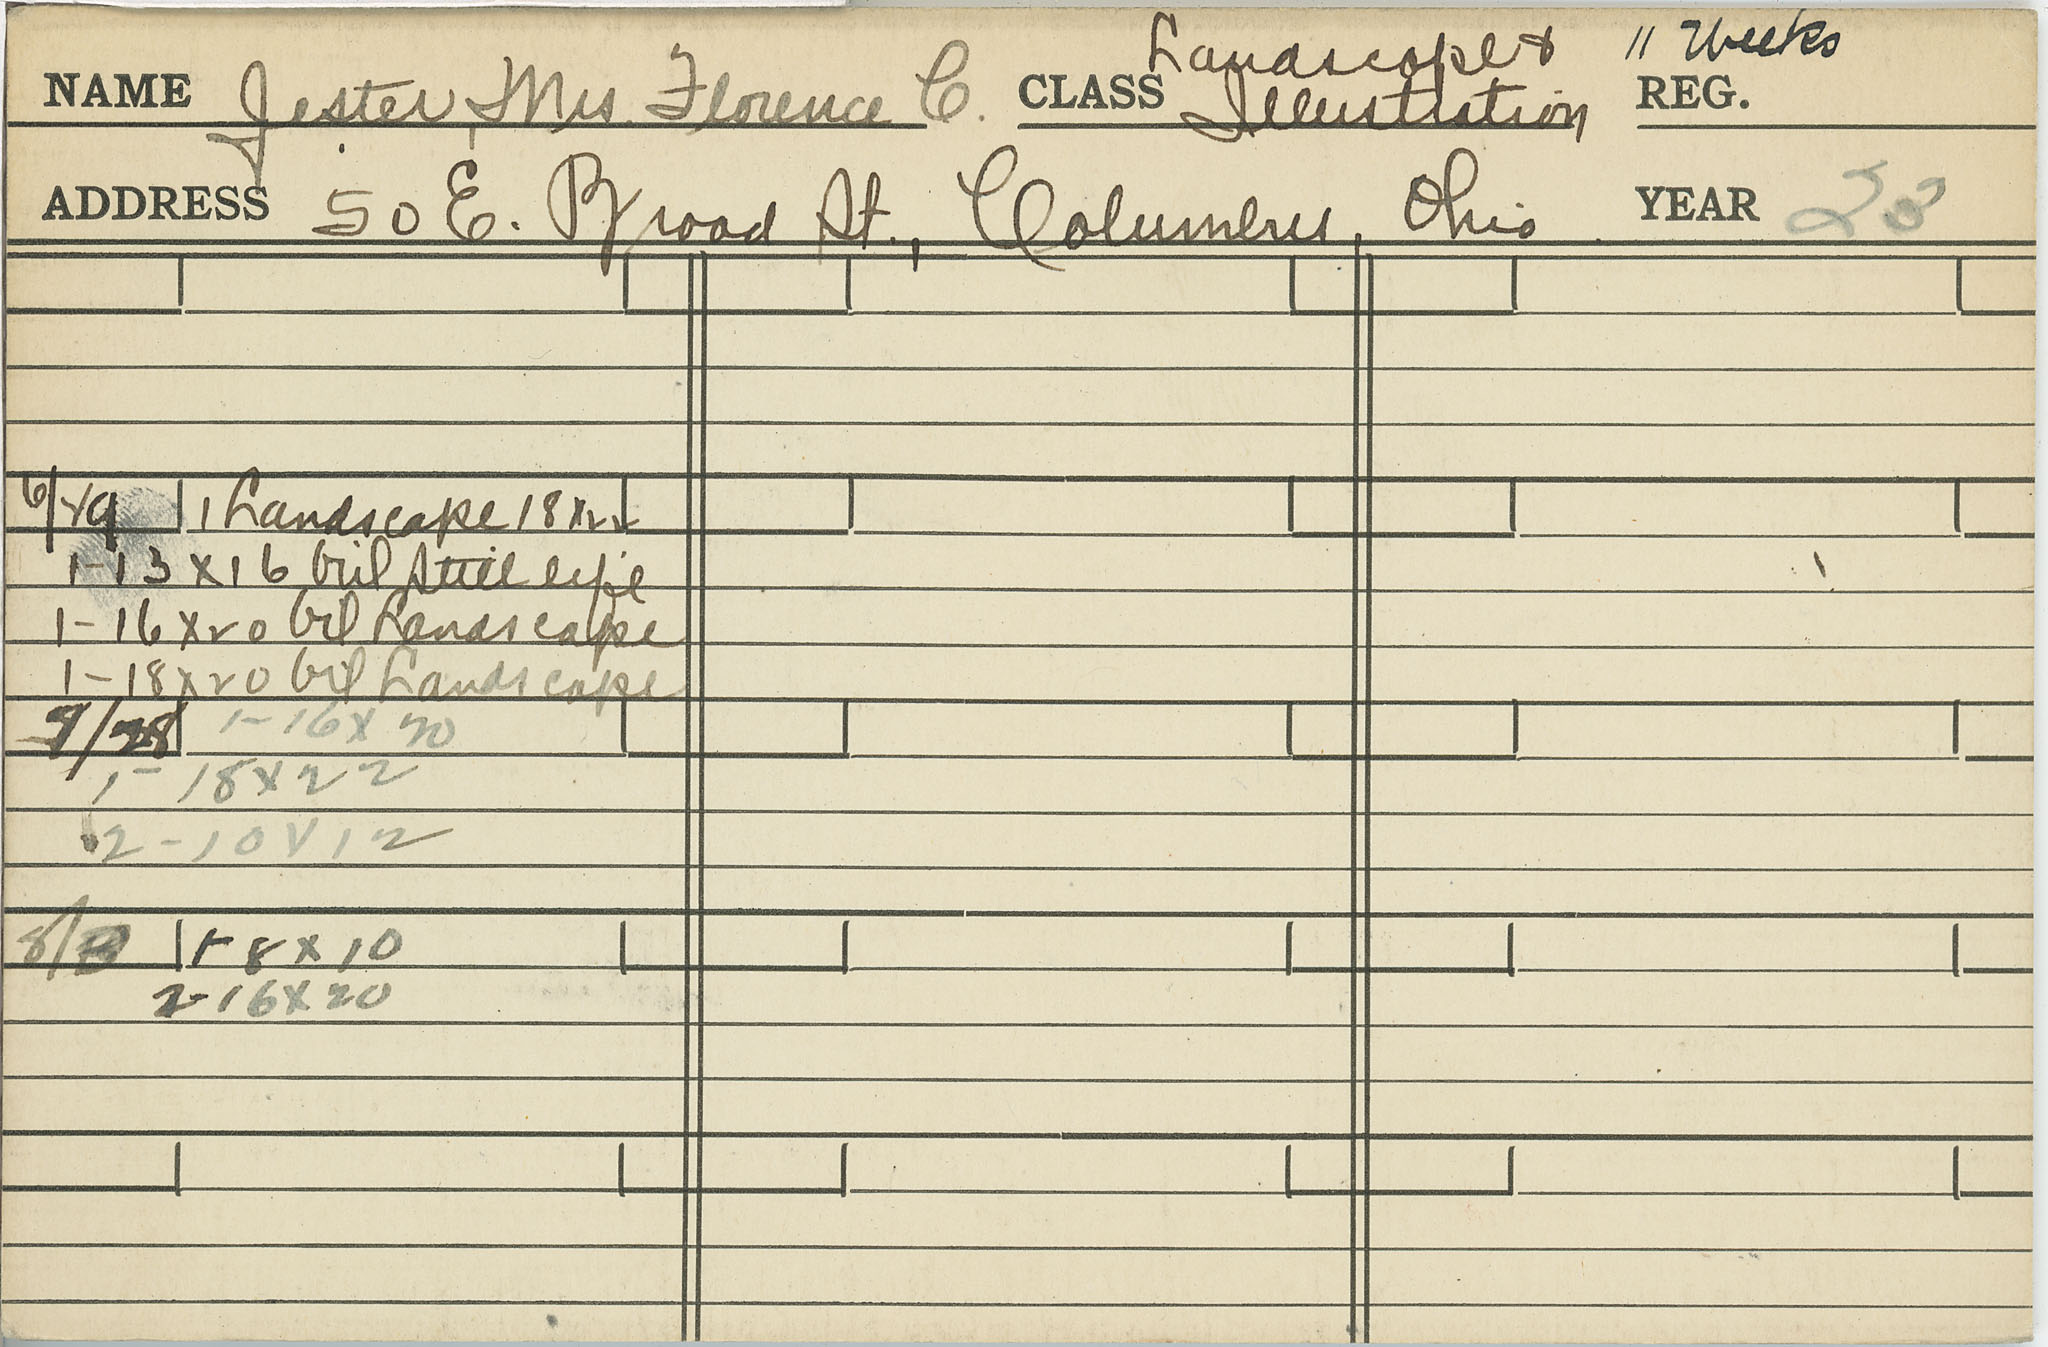 Landscape & 11 Weeks
NAME Jester, Mrs. Florence C. CLASS Illustration REG.
ADDRESS 50 E. Broad St., Columbus, Ohio YEAR 23
6/29 1 Landscape 18x22
1-13x16 Oil Still life
1-16x20 Oil Landscape
1-18x20 Oil Landscape
1-16x20
1-18x22
2-10x12
1-8x10
2-16x20